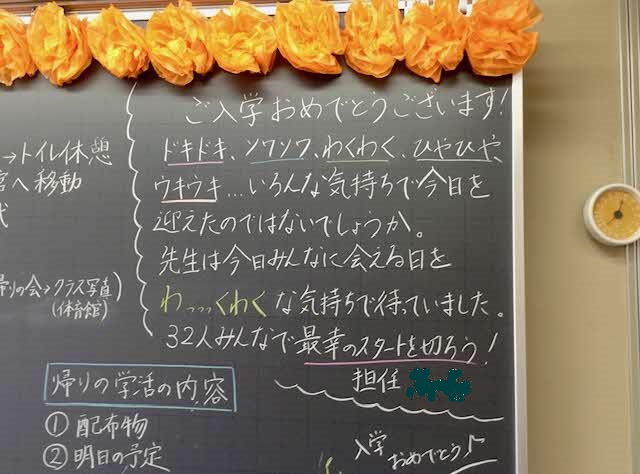 ご入学おめでとうございます!
ドキドキ、ソワソワ、わくわく、ひやひや、
ウキウキ…いろんな気持ちで今日を
迎えたのではないでしょうか。
先生は今日みんなに会える日を
わっっっくわくな気持ちで待っていました。
32人みんなで最幸のスタートを切ろう!
担任
→トイレ休憩
へ移動
りの会→クラス写真)
(体育館)
帰りの学活の内容
① 配布物
② 明日の予定
入学
おめでとう♪